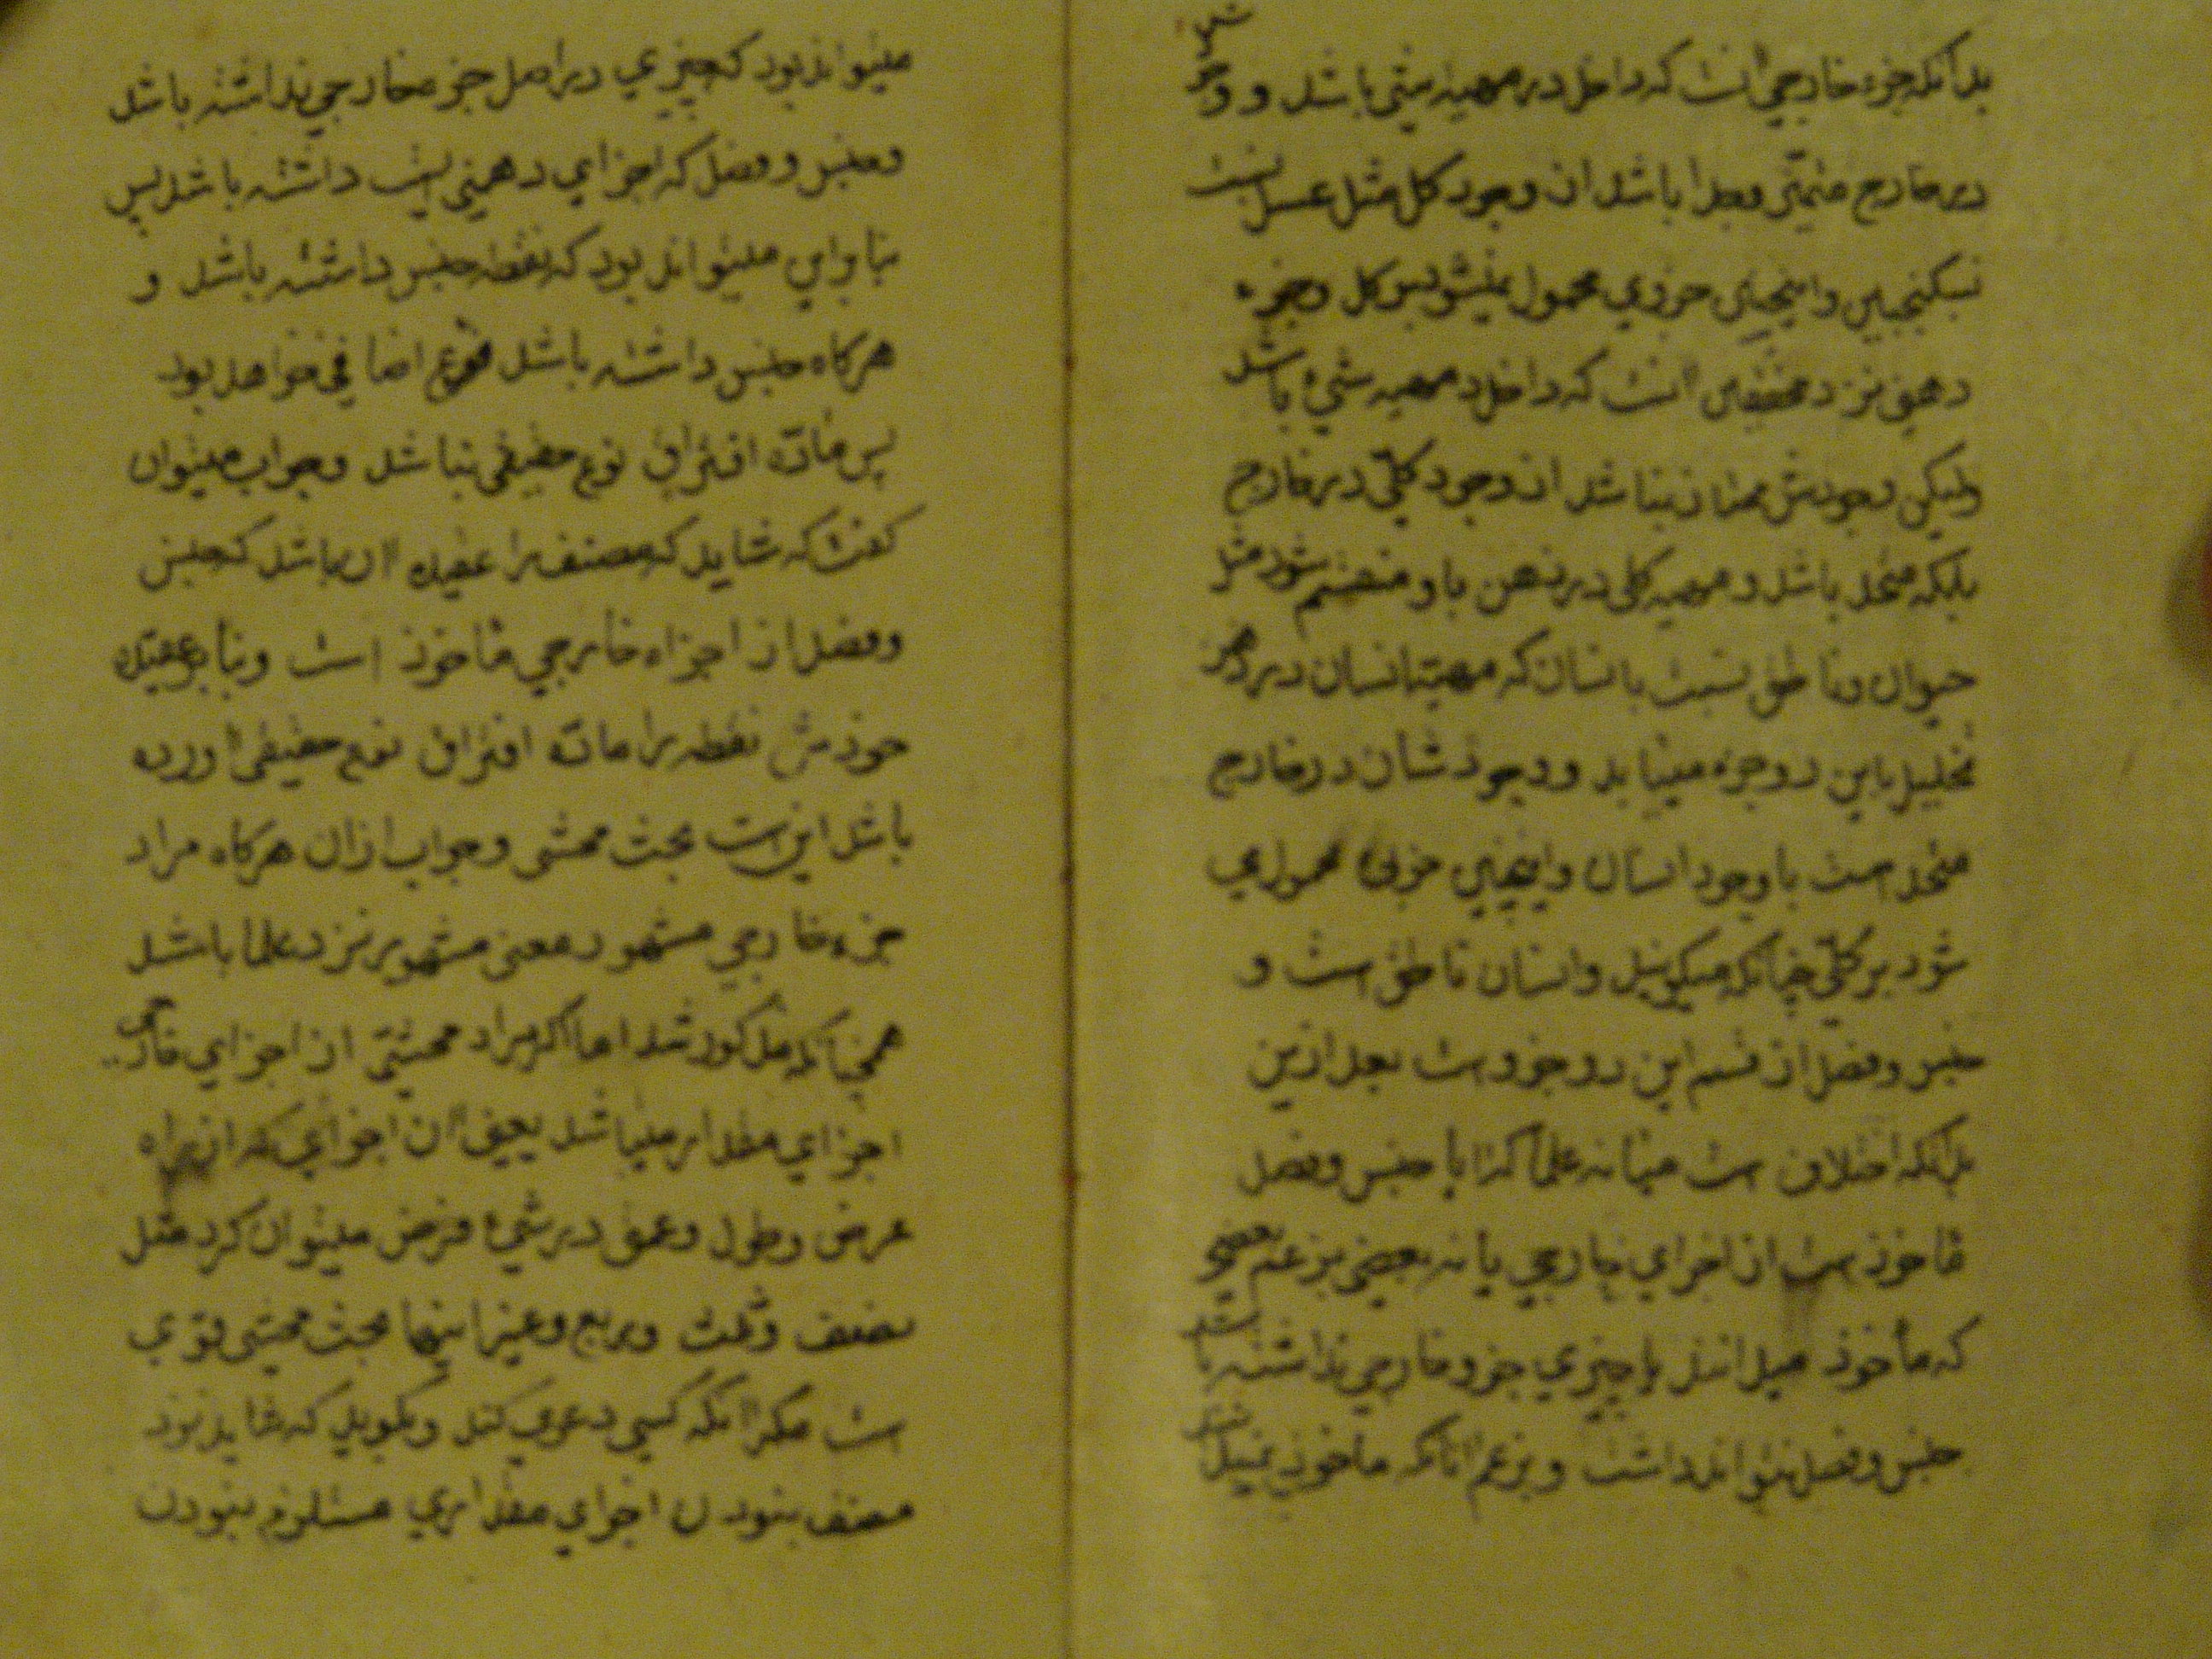 بدانکه جزء خارجی آنست که داخل در مهیه شئی باشد و وجودش
در خارج متمیّز و جدا باشد از وجود کل مثل عسل نسبت
بسکنجبین و اینچنین جزوي محمول نمیشود بر کل و جزء
ذهنی نزد محققین آنست که داخل در مهیه شيء باشد
ولیکن وجودش ممتاز نباشد از وجود کلّي در خارج
بلکه متحد باشد و مهیه کلی در ذهن باو منقسم شود مثل
حیوان و ناطق نسبت بانسان که مهیت انسان در ذهن
تحلیل باین دو جزء مییابد و وجودشان در خارج
متحد است با وجود انسان و اینچنین جزئی محمول مي
شود بر کلّي چنانکه میگویند و انسان ناطق است و
جنس و فصل از قسم این دو جزو است بعد ازین
بدانکه اختلاف است میانه علما که آیا جنس و فصل
ماخوذ است از اجزاي خارجي یا نه بعضی بزعم بعضي
که مأخوذ میدانند یا چیزي جزو خارجي نداشته باشد
جنس و فصل نتواند داشت و بزعم آنانکه ماخوذ نمیدانند
میتواند بود که چیزي در اصل جزء خارجي نداشته باشد
و جنس و فصل که اجزاي ذهني است داشته باشد پس
بنابراین میتواند بود که نقطه جنس داشته باشد و
هرکاه جنس داشته باشد نوع اضافي خواهد بود
پس مادّه افتراق نوع حقیقی نباشد و جواب میتوان
کفت که شاید که مصنف را عقیده آن باشد که جنس
و فصل از اجزاء خارجي ماخوذ است و بنا بر عقیده
خودش نقطه را مادّه افتراق نوع حقیقی آورده
باشد این است بحث محشی و جواب ازان هرکاه مراد
جزء خارجي مشهور معنی مشهور نزد علما باشد
همچنانکه مذکور شد اما اکر مراد محشّی از اجزاي خارجی
اجزاي مقدار میباشد یعنی آن اجزاي که ان را
عرض و طول و عمق در شيء فرض میتوان کرد مثل
نصف و ثلث و ربع و غیر اینها بحث محشی قوّي
است مکر آنکه کسي دعوي کند و بکوید که شاید نزد
مصنف نبودن اجزاي مقداري مستلزم نبودن